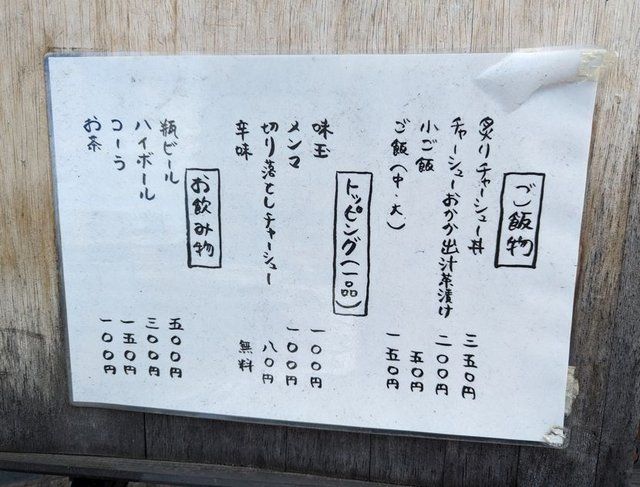 ご飯物
炙りチャーシュー丼 三五〇円
チャーシューおかか出汁茶漬け 二〇〇円
小ご飯 五〇円
ご飯(中・大) 一五〇円
トッピング(一品)
味玉 一〇〇円
メンマ 一〇〇円
切り落としチャーシュー 八〇円
辛味 無料
お飲み物
瓶ビール 五〇〇円
ハイボール 三〇〇円
コーラ 一五〇円
お茶 一〇〇円